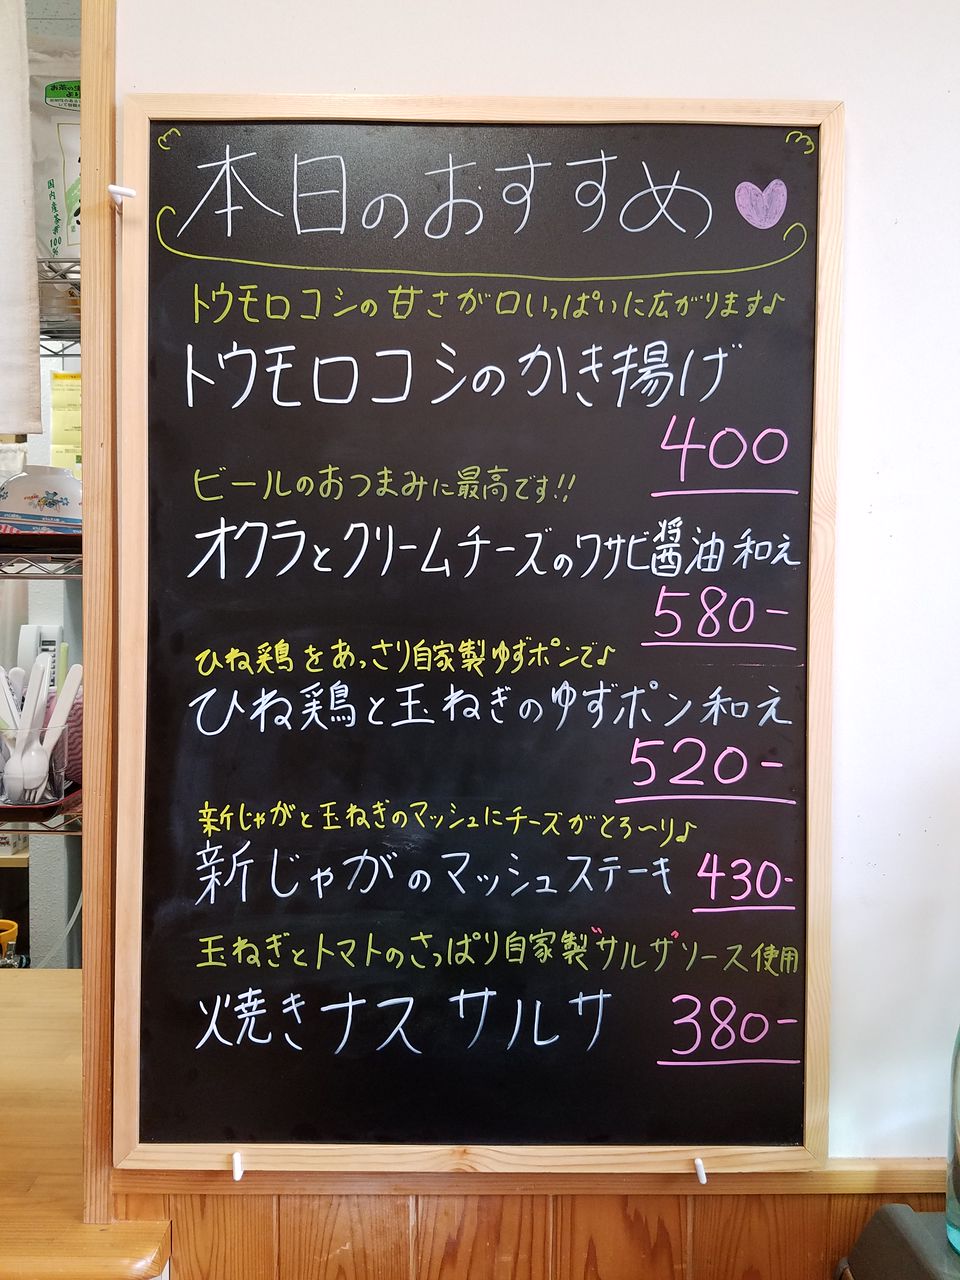 本日のおすすめ
トウモロコシの甘さが口いっぱいに広がります♪
トウモロコシのかき揚げ
400
ビールのおつまみに最高です!!
オクラとクリームチーズのワサビ醤油和え
580-
ひね鶏をあっさり自家製ゆずポンで♪
ひね鶏と玉ねぎのゆずポン和え
520-
新じゃがと玉ねぎのマッシュにチーズがとろ〜り♪
新じゃがのマッシュステーキ 430-
玉ねぎとトマトのさっぱり自家製"サルサ"ソース使用
焼きナス サルサ 380-
国内産茶葉100%